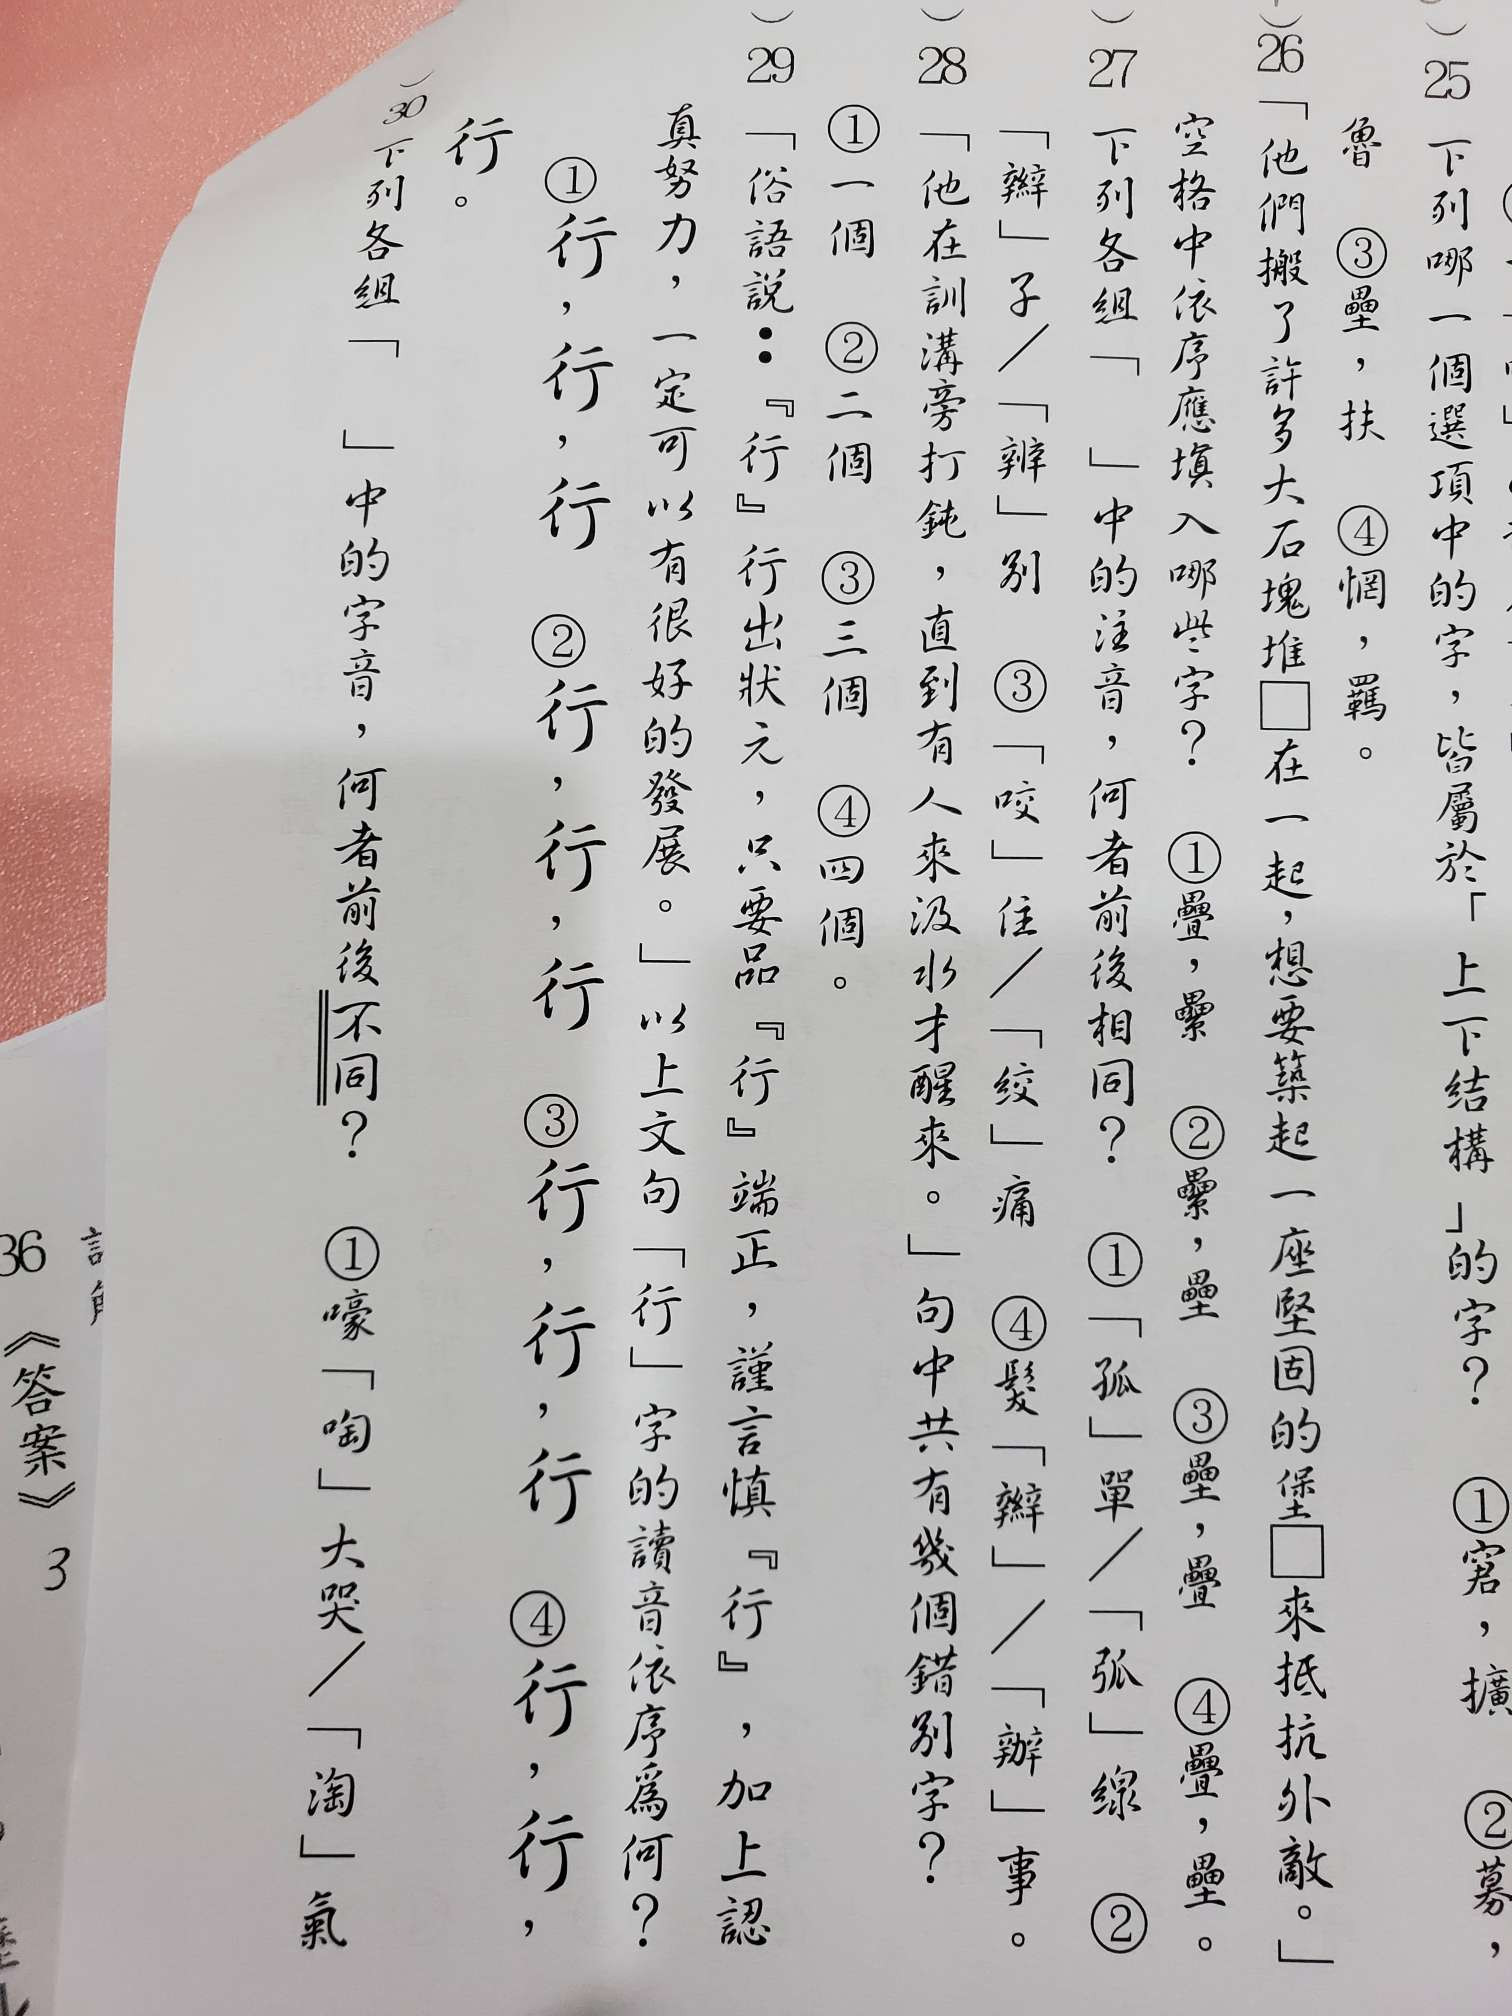 )25 下列哪一個選項中的字，皆屬於「上下結構」的字？ ①窘，擴 ②募，
魯 ③壘，扶 ④惘，羈。
)26「他們搬了許多大石塊堆□在一起，想要築起一座堅固的堡□來抵抗外敵。」
空格中依序應填入哪些字？ ①疊，纍 ②纍，壘 ③壘，疊 ④疊，壘。
)27 下列各組「 」中的注音，何者前後相同？ ①「孤」單／「弧」線 ②
「辮」子／「辨」別 ③「咬」住／「絞」痛 ④髮「辮」／「辦」事。
)28「他在訓溝旁打鈍，直到有人來汲水才醒來。」句中共有幾個錯別字？
①一個 ②二個 ③三個 ④四個。
)29「俗語說：『行』行出狀元，只要品『行』端正，謹言慎『行』，加上認
真努力，一定可以有很好的發展。」以上文句「行」字的讀音依序為何？
①行，行，行 ②行，行，行 ③行，行，行 ④行，行，
行。
)30下列各組「 」中的字音，何者前後不同？ ①嚎「啕」大哭／「淘」氣
36 《答案》3